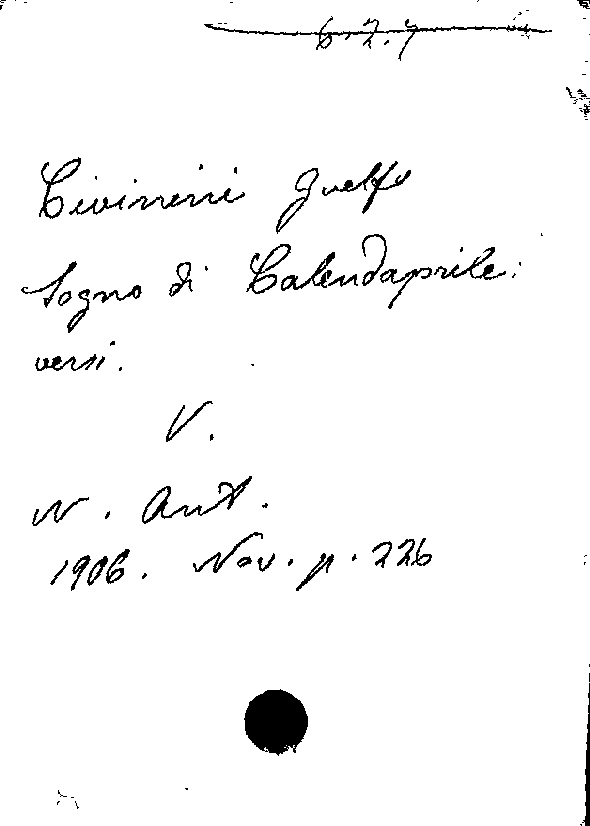 6.2.7
Civinini Guelfo
Sogno di Calendaprile:
versi.
V.
N. Ant.
1906. Nov. p. 226